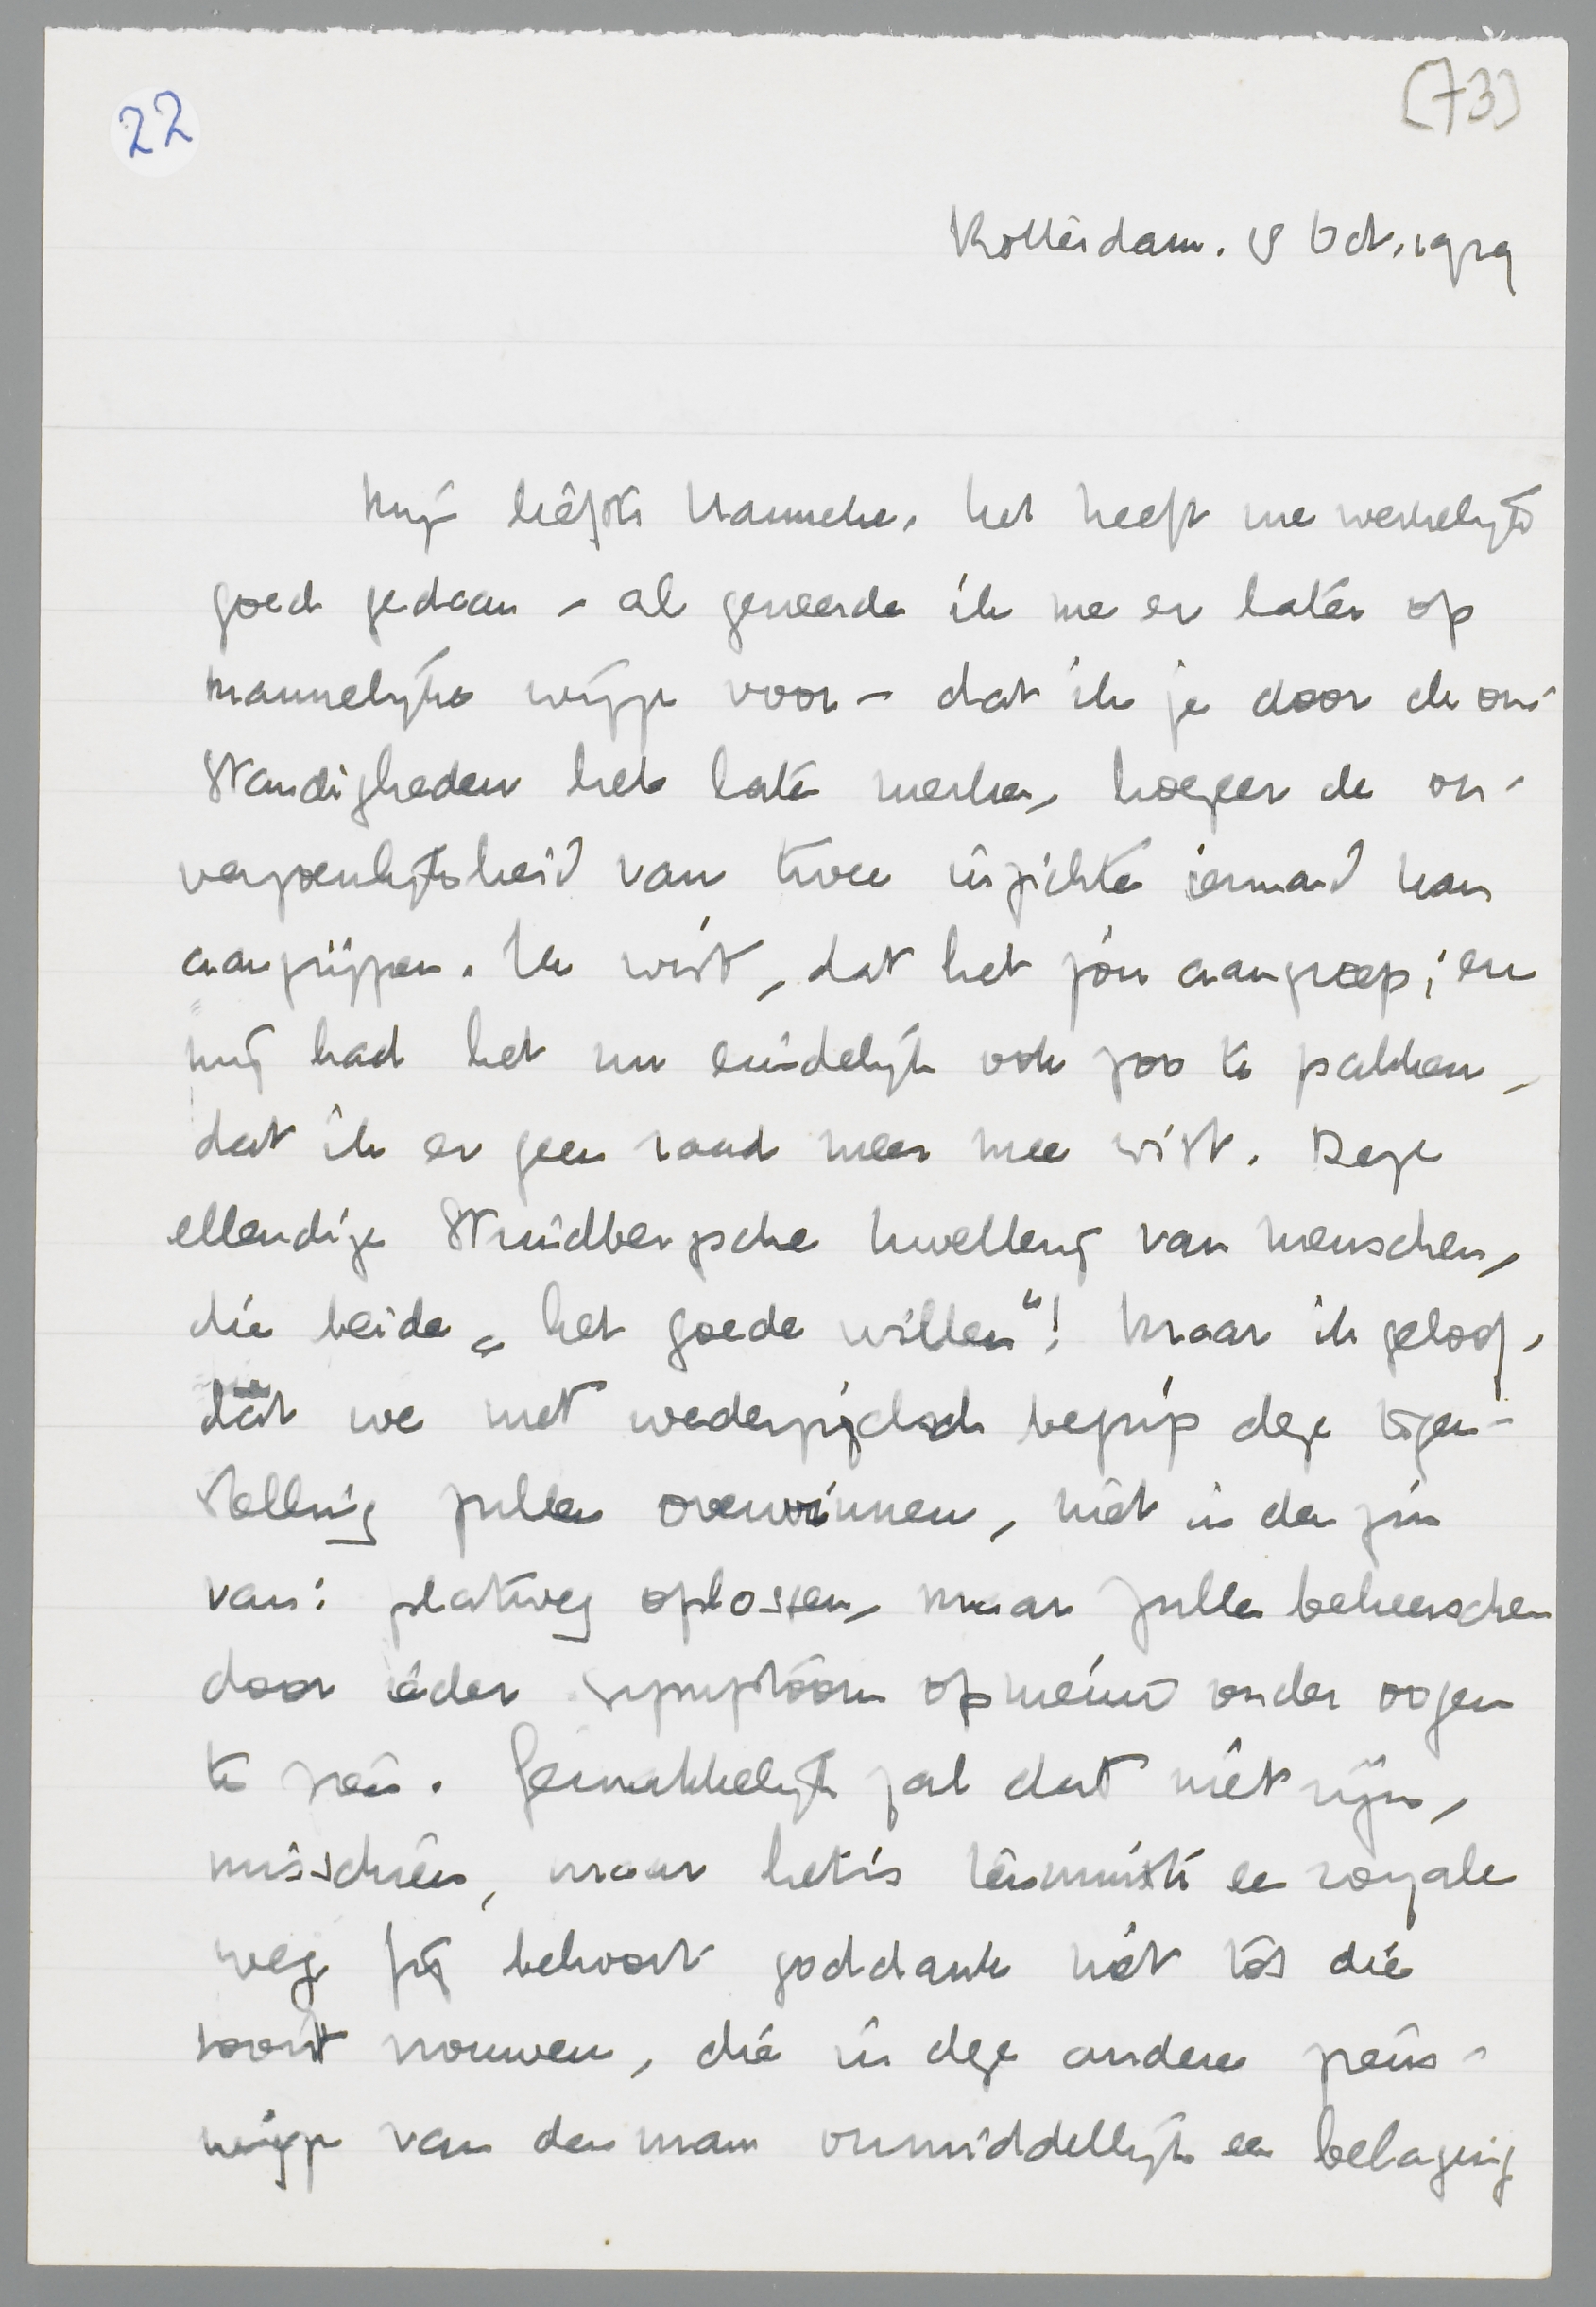 22
(73)
Rotterdam. 18 Oct. 1929
Mijn liefste Hanneke, het heeft me werkelijk
goed gedaan – al geneerde ik me er later op
mannelijke wijze voor – dat ik je door de om-
standigheden heb laten merken, hoezeer de on-
verzoenlijkheid van twee inzichten iemand kan
aangrijpen. Ik wist, dat het jou aangreep; en
mij had het nu eindelijk ook zoo te pakken,
dat ik er geen raad meer mee wist. Deze
ellendige Strindbergsche kwelling van menschen,
die beide „het goede willen"! Maar ik geloof,
dat we met wederzijdsch begrip deze tegen-
stelling zullen overwinnen, niet in den zin
van: platweg oplossen, maar zullen beheerschen
door ieder symptoom opnieuw onder oogen
te zien. Gemakkelijk zal dat niet zijn,
misschien, maar het is tenminste een royale
weg. Jij behoort goddank niet tot die
soort vrouwen, die in deze andere ziens-
wijze van den man onmiddellijk een belaging